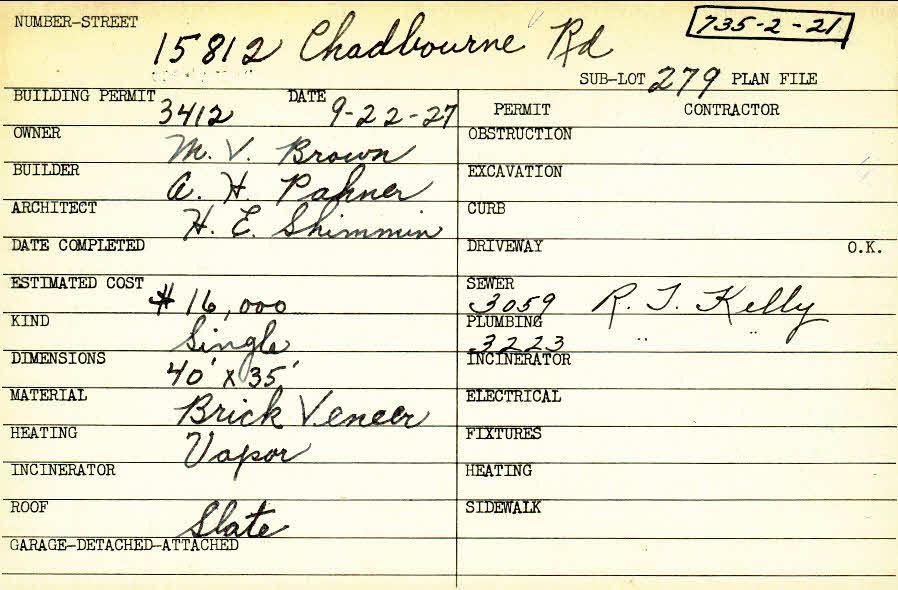 NUMBER-STREET
15812 Chadbourne Rd
735-2-21
SUB-LOT 279 PLAN FILE
BUILDING PERMIT 3412 DATE 9-22-27
OWNER M. V. Brown
BUILDER A. H. Pahner
ARCHITECT H. E. Shimmin
DATE COMPLETED
ESTIMATED COST $16,000
KIND Single
DIMENSIONS 40' x 35'
MATERIAL Brick Veneer
HEATING Vapor
INCINERATOR
ROOF Slate
GARAGE-DETACHED-ATTACHED
PERMIT CONTRACTOR
OBSTRUCTION
EXCAVATION
CURB
DRIVEWAY O.K.
SEWER 3059 R. T. Kelly
PLUMBING 3223 " "
INCINERATOR
ELECTRICAL
FIXTURES
HEATING
SIDEWALK